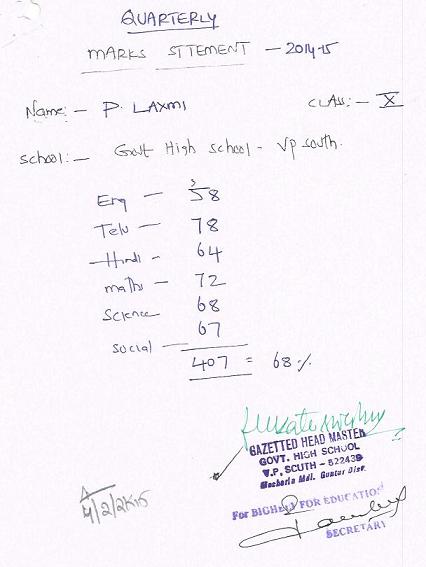 QUARTERLY
MARKS STTEMENT - 2014-15
Name:- P. LAXMI CLASS:- X
School:- Govt High school - Vp south.
Eng - 58
Telu - 78
Hindi - 64
maths - 72
Science 68
social - 67
407 = 68 %
GAZETTED HEAD MASTER
GOVT. HIGH SCHOOL
V.P. SOUTH - 522439
Macherla Mdl. Guntur Dist.
For BIGHELP FOR EDUCATION
SECRETARY
4/2/2K15